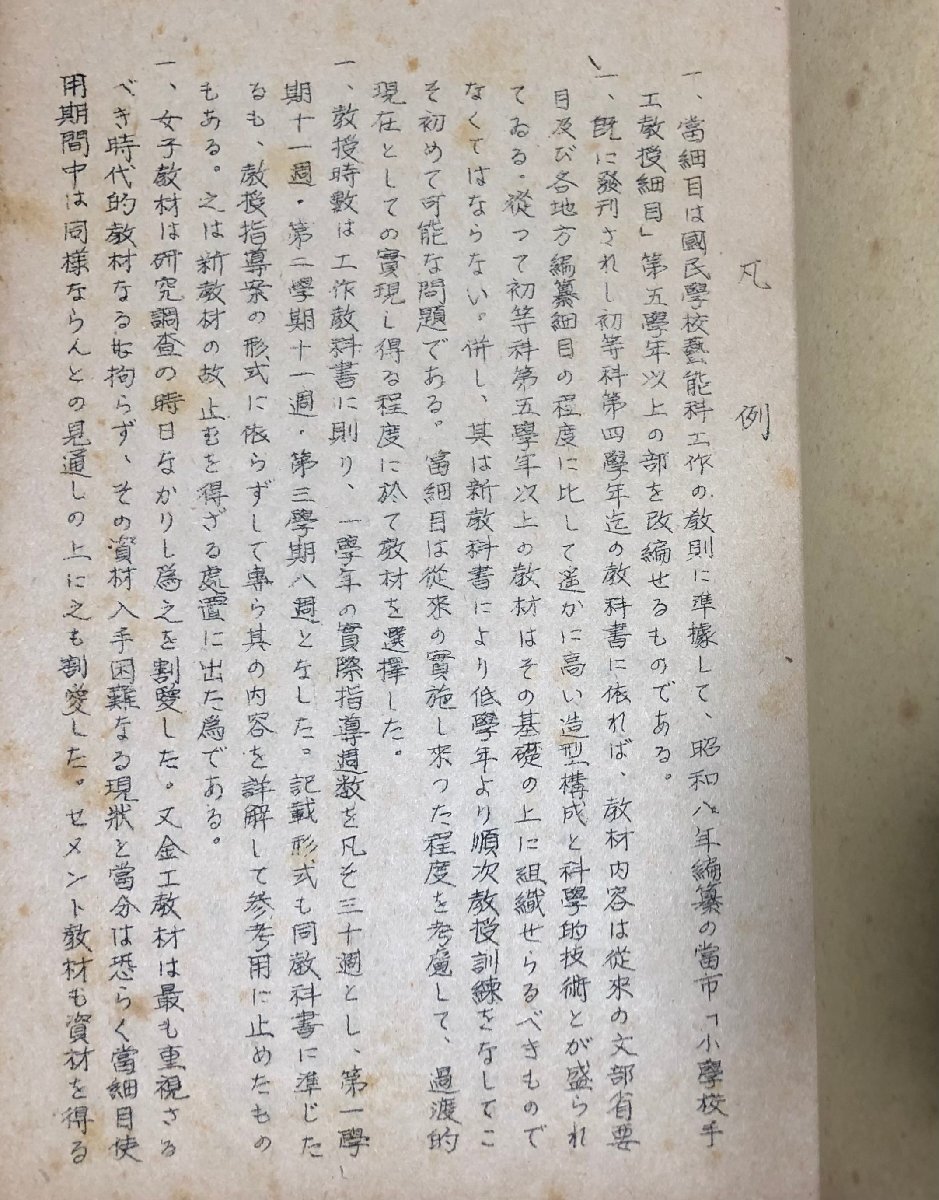 凡例
一、當細目は國民學校藝能科工作の教則に準據して、昭和八年編纂の當市「小學校手
工教授細目」第五學年以上の部を改編せるものである。
一、既に發刊されし初等科第四學年迄の教科書に依れば、教材内容は從來の文部省要
目及び各地方編纂細目の程度に比して遥かに高い造型構成と科學的技術とが盛られ
てゐる・從つて初等科第五學年以上の教材はその基礎の上に組織せらるべきもので
なくてはならない。併し、其は新教科書により低學年より順次教授訓練をなしてこ
そ初めて可能な問題である。當細目は從來の實施し來つた程度を考慮して、過渡的
現在としての實現し得る程度に於て教材を選擇した。
一、教授時數は工作教科書に則り、一學年の實際指導週数を凡そ三十週とし、第一學
期十一週・第二學期十一週・第三學期八週となした。記載形式も同教科書に準じた
るも、教授指導案の形式に依らずして專ら其の内容を詳解して参考用に止めたもの
もある。之は新教材の故止むを得ざる處置に出た為である。
一、女子教材は研究調査の時日なかりし為之を割愛した。又金工教材は最も重視さる
べき時代的教材なるにも拘らず、その資材入手困難なる現狀と當分は恐らく當細目使
用期間中は同様ならんとの見通しの上に之も割愛した。セメント教材も資材を得る